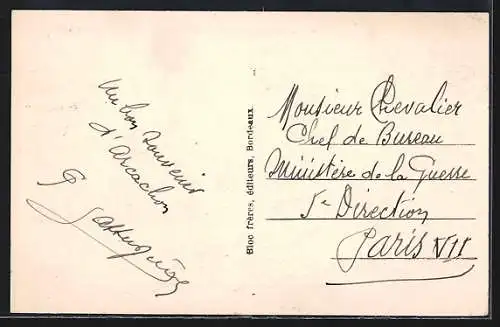 Un bon souvenir
d'Arcachon
G
Bloc frères, éditeurs, Bordeaux.
Monsieur Chevalier
Chef de Bureau
Ministère de la Guerre
5e Direction
Paris VII